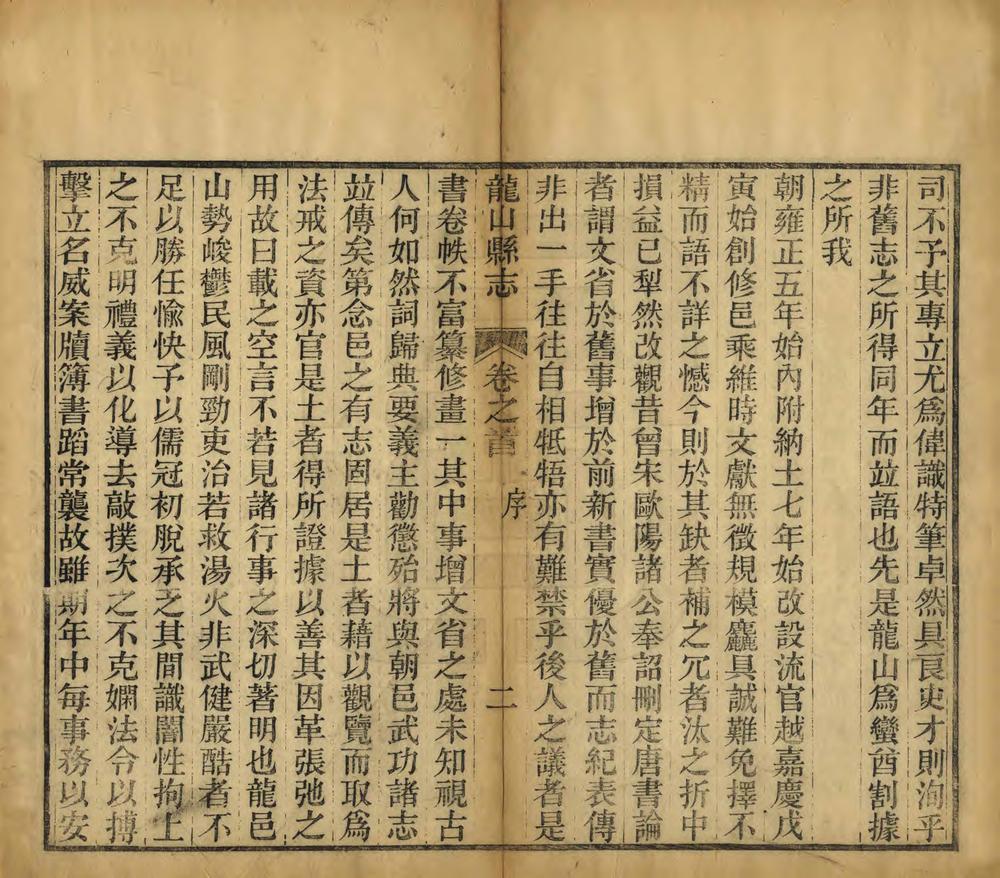 司不予其專立尤爲偉識特筆卓然具良史才則洵乎
非舊志之所得同年而竝語也先是龍山爲蠻酋割據
之所我
朝雍正五年始內附納土七年始改設流官越嘉慶戊
寅始創修邑乘維時文獻無徵規模麤具誠難免擇不
精而語不詳之憾今則於其缺者補之冗者汰之折中
損益已犁然改觀昔曾宋歐陽諸公奉詔刪定唐書論
者謂文省於舊事增於前新書實優於舊而志紀表傳
非出一手往往自相牴牾亦有難禁乎後人之議者是
龍山縣志 卷之首 序 二
書卷帙不富纂修畫一其中事增文省之處未知視古
人何如然詞歸典要義主勸懲殆將與朝邑武功諸志
竝傳矣第念邑之有志固居是土者藉以觀覽而取爲
法戒之資亦官是土者得所證據以善其因革張弛之
用故曰載之空言不若見諸行事之深切著明也龍邑
山勢峻鬱民風剛勁吏治若救湯火非武健嚴酷者不
足以勝任愉快予以儒冠初脫承乏其間識闇性拘上
之不克明禮義以化導去敲撲次之不克嫻法令以搏
擊立名威案牘簿書蹈常襲故雖期年中每事務以安